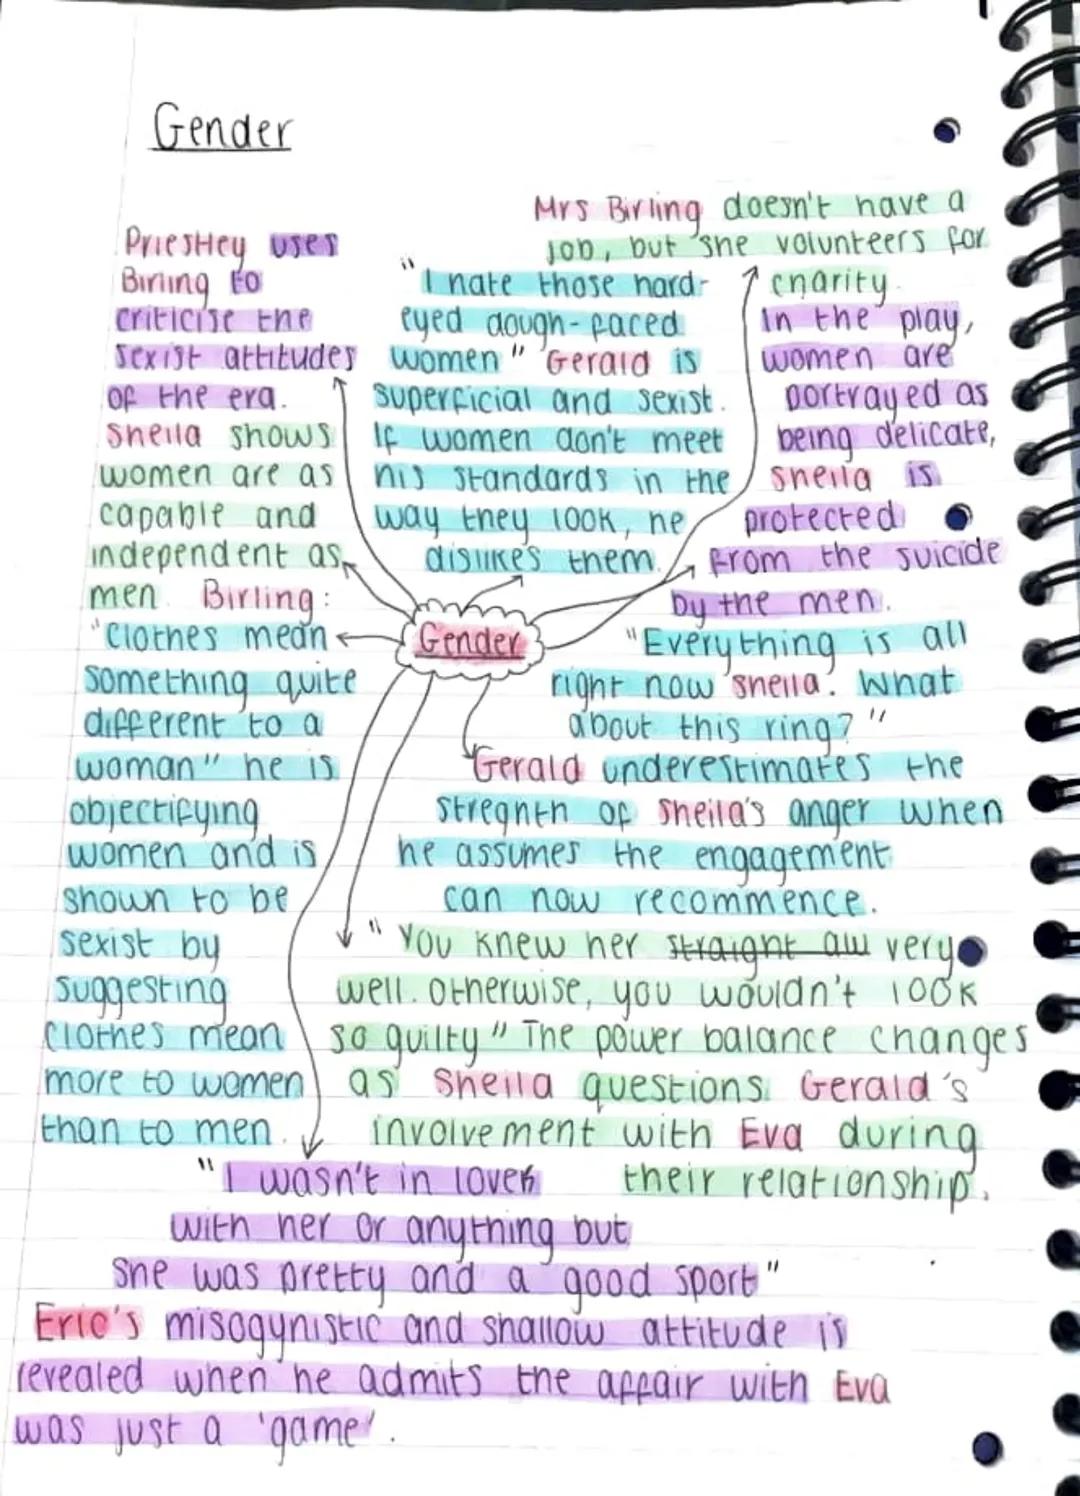 Gender
Mrs Birling doesn't have a
job, but she volunteers for
charity.
Priestley uses
Birling to
criticise the
sexist attitudes
of the era.
Sheila shows
women are as
capable and
independent as
men. Birling:
"Clothes mean
something quite
different to a
woman" he is
objectifying
women and is
shown to be
sexist by
suggesting
clothes mean
more to women
than to men.
"I hate those hard-
eyed dough-faced
women" Gerald is
superficial and sexist.
If women don't meet
his standards in the
way they look, he
dislikes them.
In the play,
women are
portrayed as
being delicate,
Sheila is
protected
from the suicide
by the men.
Gender
"Everything is all
right now Sheila. What
about this ring?"
Gerald underestimates the
stregnth of Sheila's anger when
he assumes the engagement
can now recommence.
"You knew her straight aw very
well. Otherwise, you wouldn't look
so guilty" The power balance changes
as Sheila questions Gerald's
involvement with Eva during
their relationship.
"I wasn't in love
with her or anything but
she was pretty and a good sport"
Eric's misogynistic and shallow attitude is
revealed when he admits the affair with Eva
was just a 'game'.